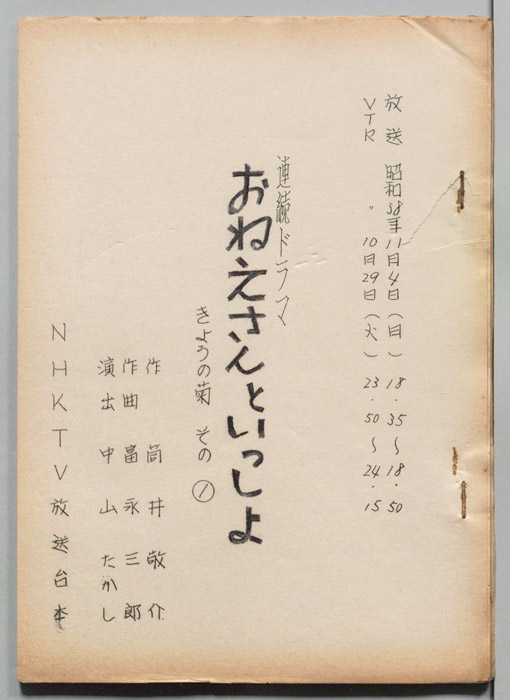 放送 昭和38年11月4日（月）18.35～18.50
VTR 〃 10月29日（火）23.50～24.15
連続ドラマ
おねえさんといっしょ
きようの菊 その①
作 筒井敬介
作曲 冨永三郎
演出 中山たかし
NHKTV放送台本